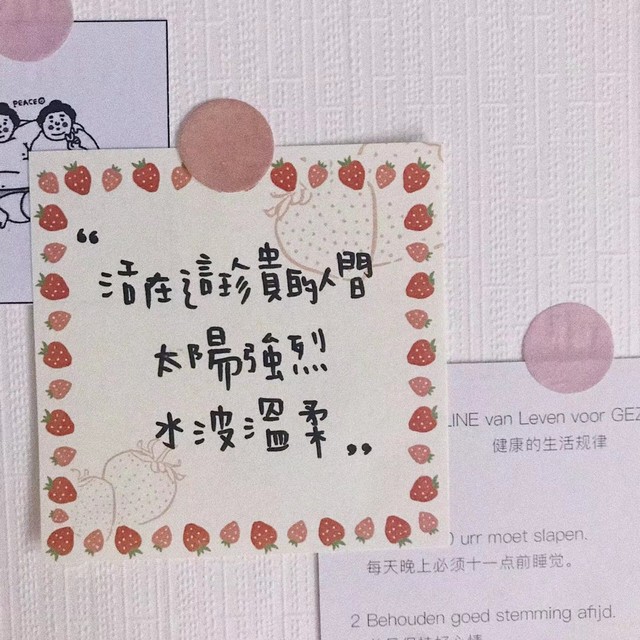 PEACE☺
“
活在這珍貴的人間
太陽強烈
水波溫柔
”
LINE van Leven voor GEZ
健康的生活规律
urr moet slapen.
每天晚上必须十一点前睡觉。
2 Behouden goed stemming afijd.